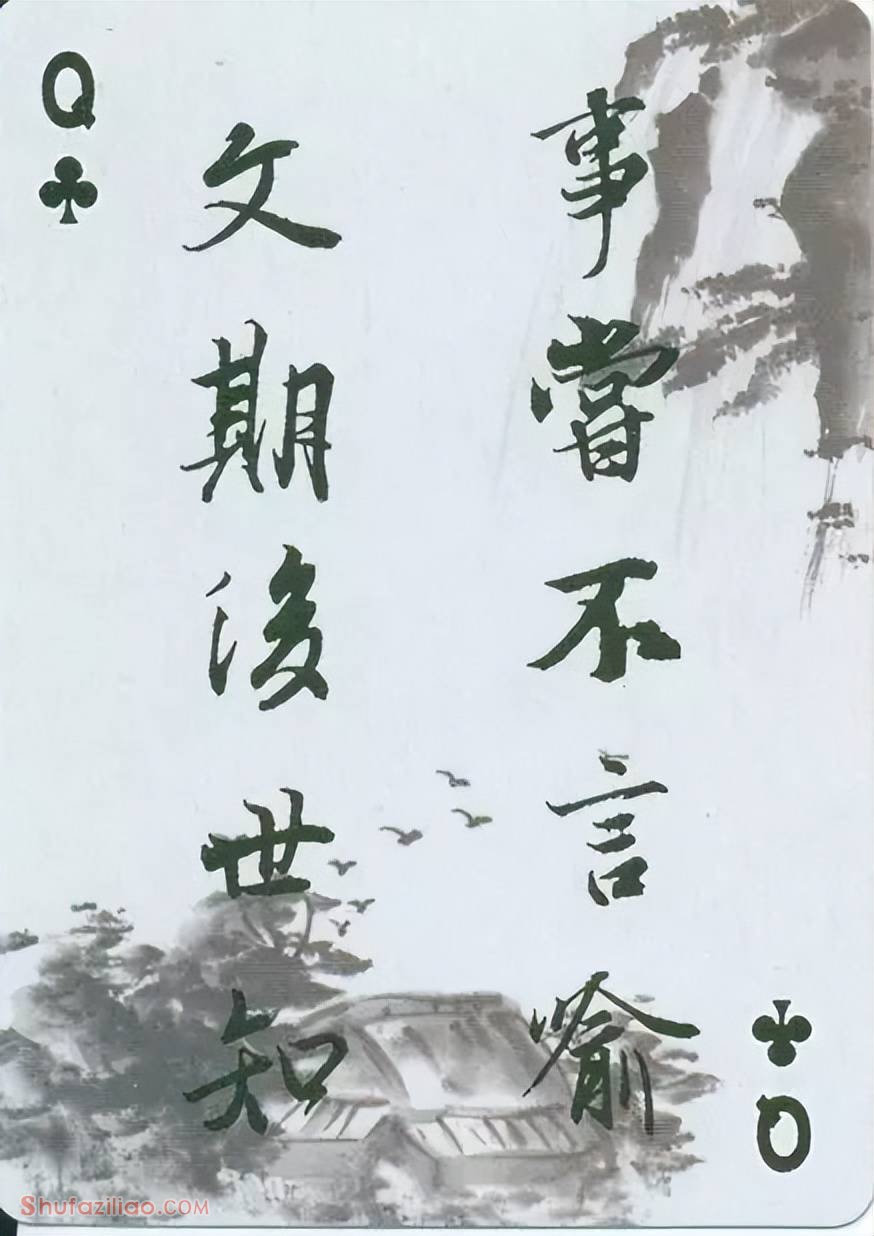 Q
事當不言喻
文期後世知
Q
Shufaziliao.COM